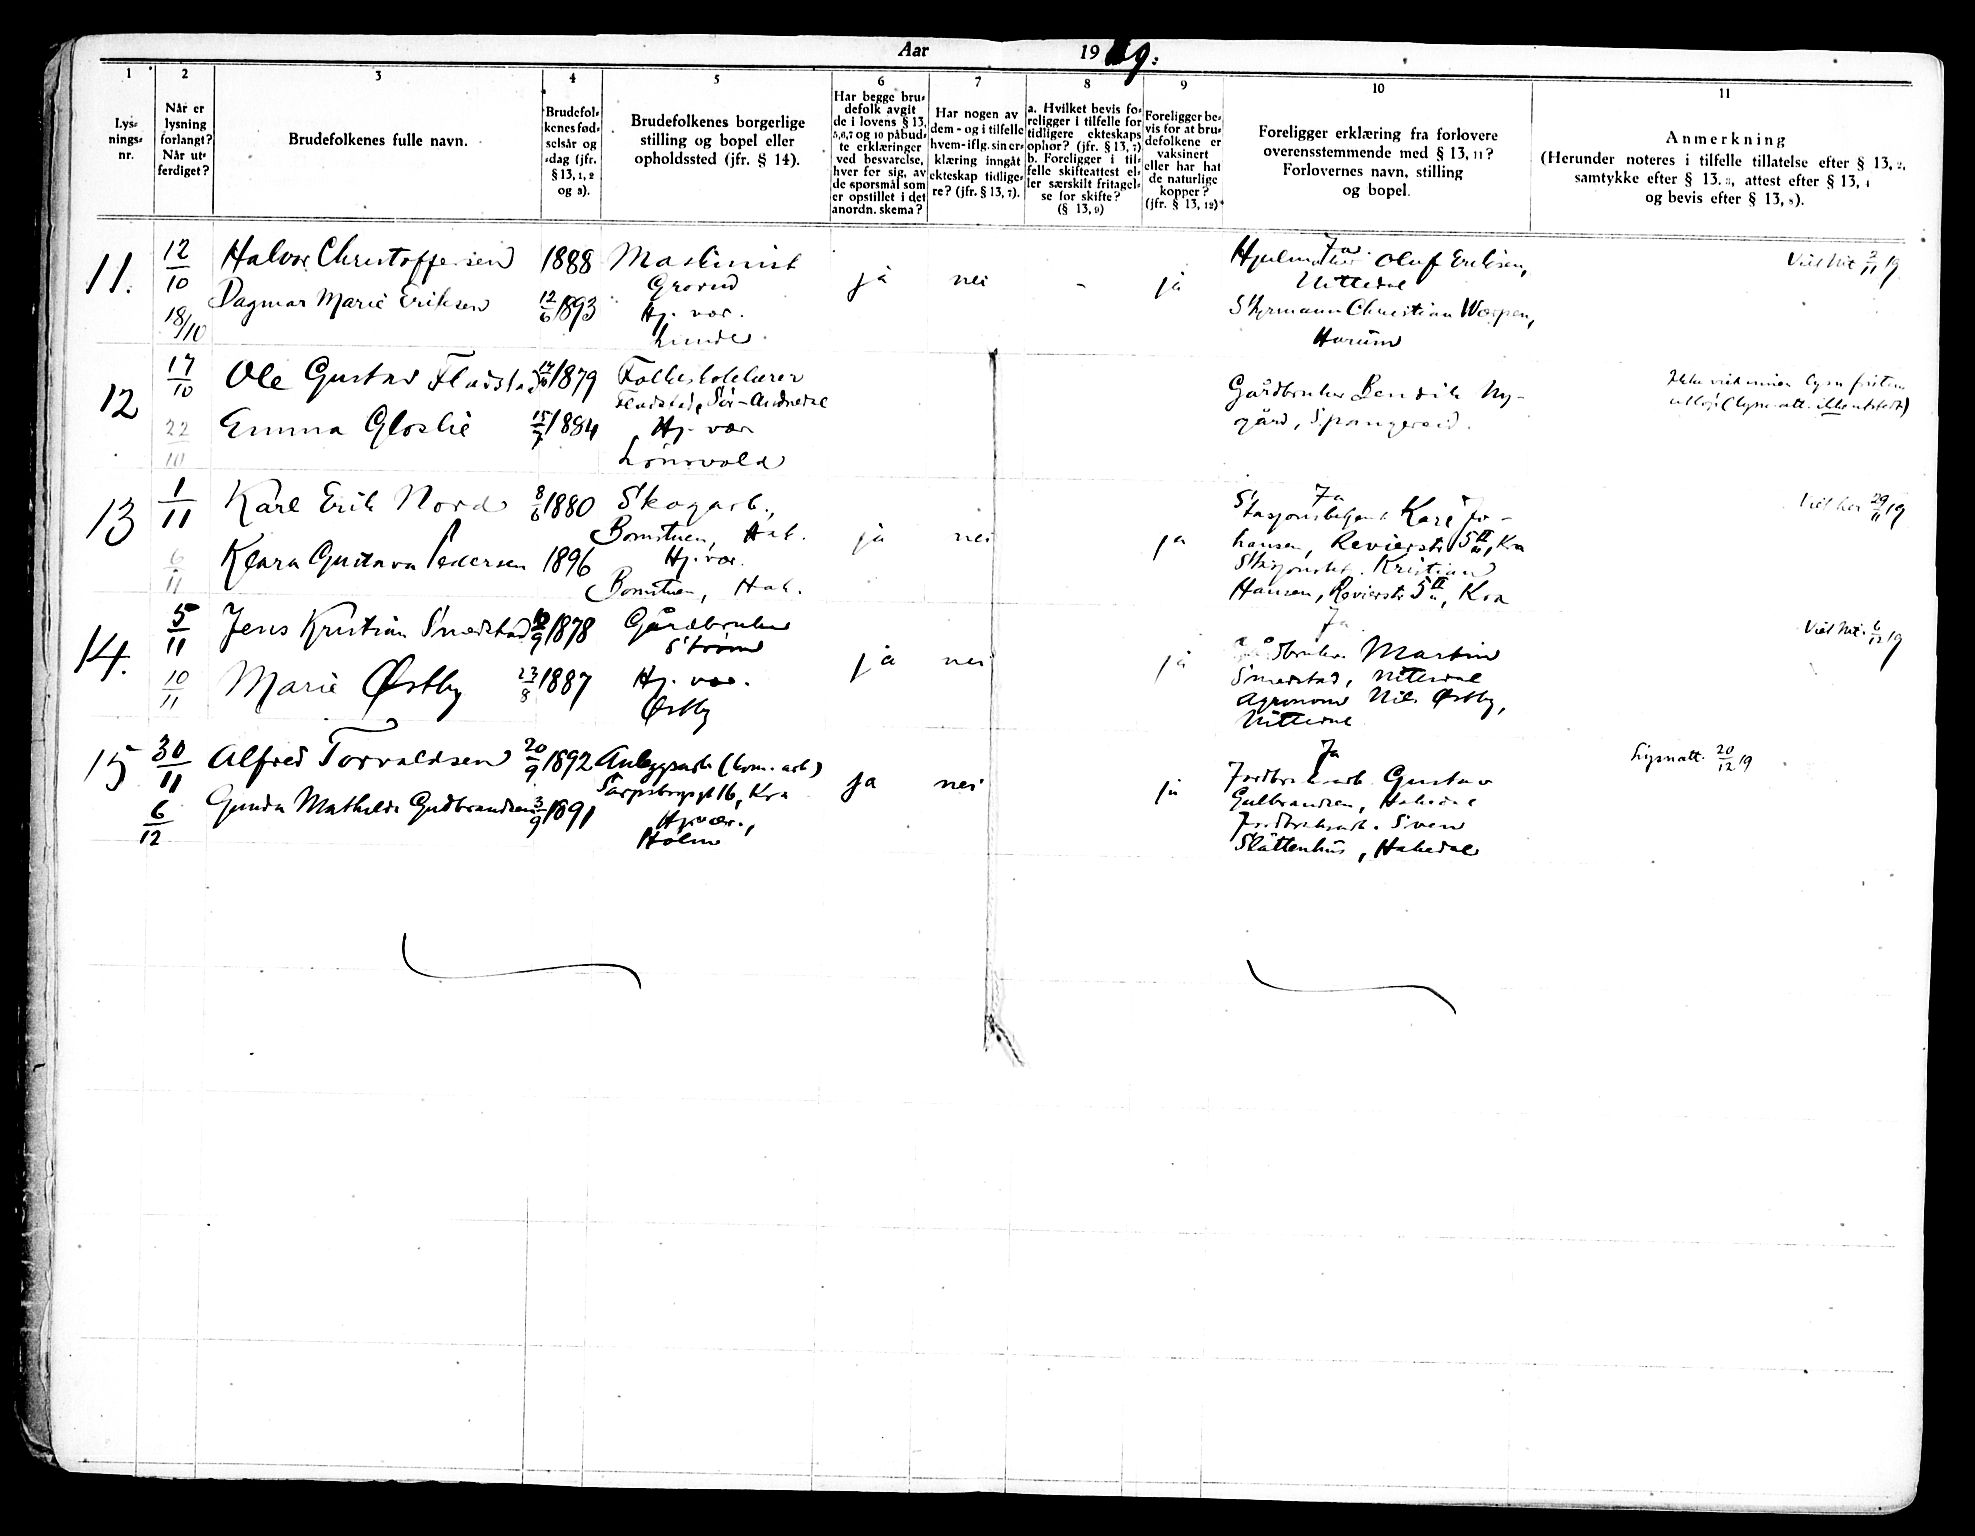 Aar 1919.
1 2 3 4 5 6 7 8 9 10 11
Lys-
nings-
nr.
Når er
lysning
forlangt?
Når ut-
ferdiget?
Brudefolkenes fulle navn.
Brudefol-
kenes fød-
selsår og
-dag (jfr.
§ 13, 1, 2
og 3).
Brudefolkenes borgerlige
stilling og bopel eller
opholdssted (jfr. § 14).
Har begge bru-
defolk avgit
de i lovens § 13,
5, 6, 7 og 10 påbud-
te erklæringer
ved besvarelse,
hver for sig, av
de spørsmål som
er opstillet i det
anordn. skema?
Har nogen av
dem - og i tilfelle
hvem - iflg. sin er-
klæring inngåt
ekteskap tidlige-
re? (jfr. § 13, 7).
a. Hvilket bevis fo-
religger i tilfelle for
tidligere ekteskaps
ophør? (jfr. § 13, 7)
b. Foreligger i til-
felle skifteattest el-
ler særskilt fritagel-
se for skifte?
(§ 13, 9)
Foreligger be-
vis for at bru-
defolkene er
vaksinert
eller har hat
de naturlige
kopper?
(jfr. § 13, 12)
Foreligger erklæring fra forlovere
overensstemmende med § 13, 11?
Forlovernes navn, stilling
og bopel.
Anmerkning
(Herunder noteres i tilfelle tillatelse efter § 13, 2,
samtykke efter § 13, 3, attest efter § 13, 4
og bevis efter § 13, 8).
11.
12/10
18/10
Halvor Christoffersen
Dagmar Marie Eriksen
1888
12/6 1893
Maskinist
Grorud
Hj. vær.
Lunde
ja nei - ja
Ja
Oluf Eriksen,
Nittedal
Styrmann Christian Woxpen,
Harum
Viet Nit. 2/11 19
12
17/10
22/10
Ole Gustav Fladstad
Emma Gloslie
1879
15/7 1884
Folkeskolelærer
Fladstad, Sør-Audnedal
Hj. vær
Lønsvold
Gårdbruker Bendik Ny-
gård, Spangereid.
Ikke viet innen lysn. fristens
utløp (lysn. att. ikke utstedt)
13
1/11
6/11
Karl Erik Nord
Klara Gustava Pedersen
8/6 1880
1896
Skogarb.,
Bomstuen, Hak.
Hj. vær.
Bomstuen, Hak.
ja nei ja
Ja
Stasjonsbetjent Kare Jo-
hansen, Revierstr. 5 II, Kra
Stasjonsbet. Kristian
Hansen, Revierstr. 5 II, Kra
Viet her 29/11 19
14.
5/11
10/11
Jens Kristian Smedstad
Marie Østby
1878
23/8 1887
Gårdbruker
Strøm
Hj. vær.
Østby
ja nei ja
Ja
Gårdbruker Martin
Smedstad, Nittedal
Agronom Nils Østby,
Nittedal
Viet Nit. 6/12 19
15
30/11
6/12
Alfred Torvaldsen
Gunda Mathilde Gudbrandsen
20/9 1892
3/9 1891
Anleggsarb. (kom. arb)
Sarpsborggt 16, Kra
Hj. vær.,
Holm
ja nei ja
Ja
Jordbruksarb. Gustav
Gulbrandsen, Hakedal
Jordbruksarb. Sven
Slåttenhus, Hakedal
Lysn. att. 20/12 19